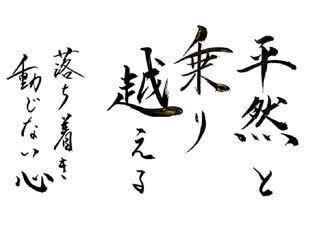 平然と
乗り
越える
落ち着き
動じない心